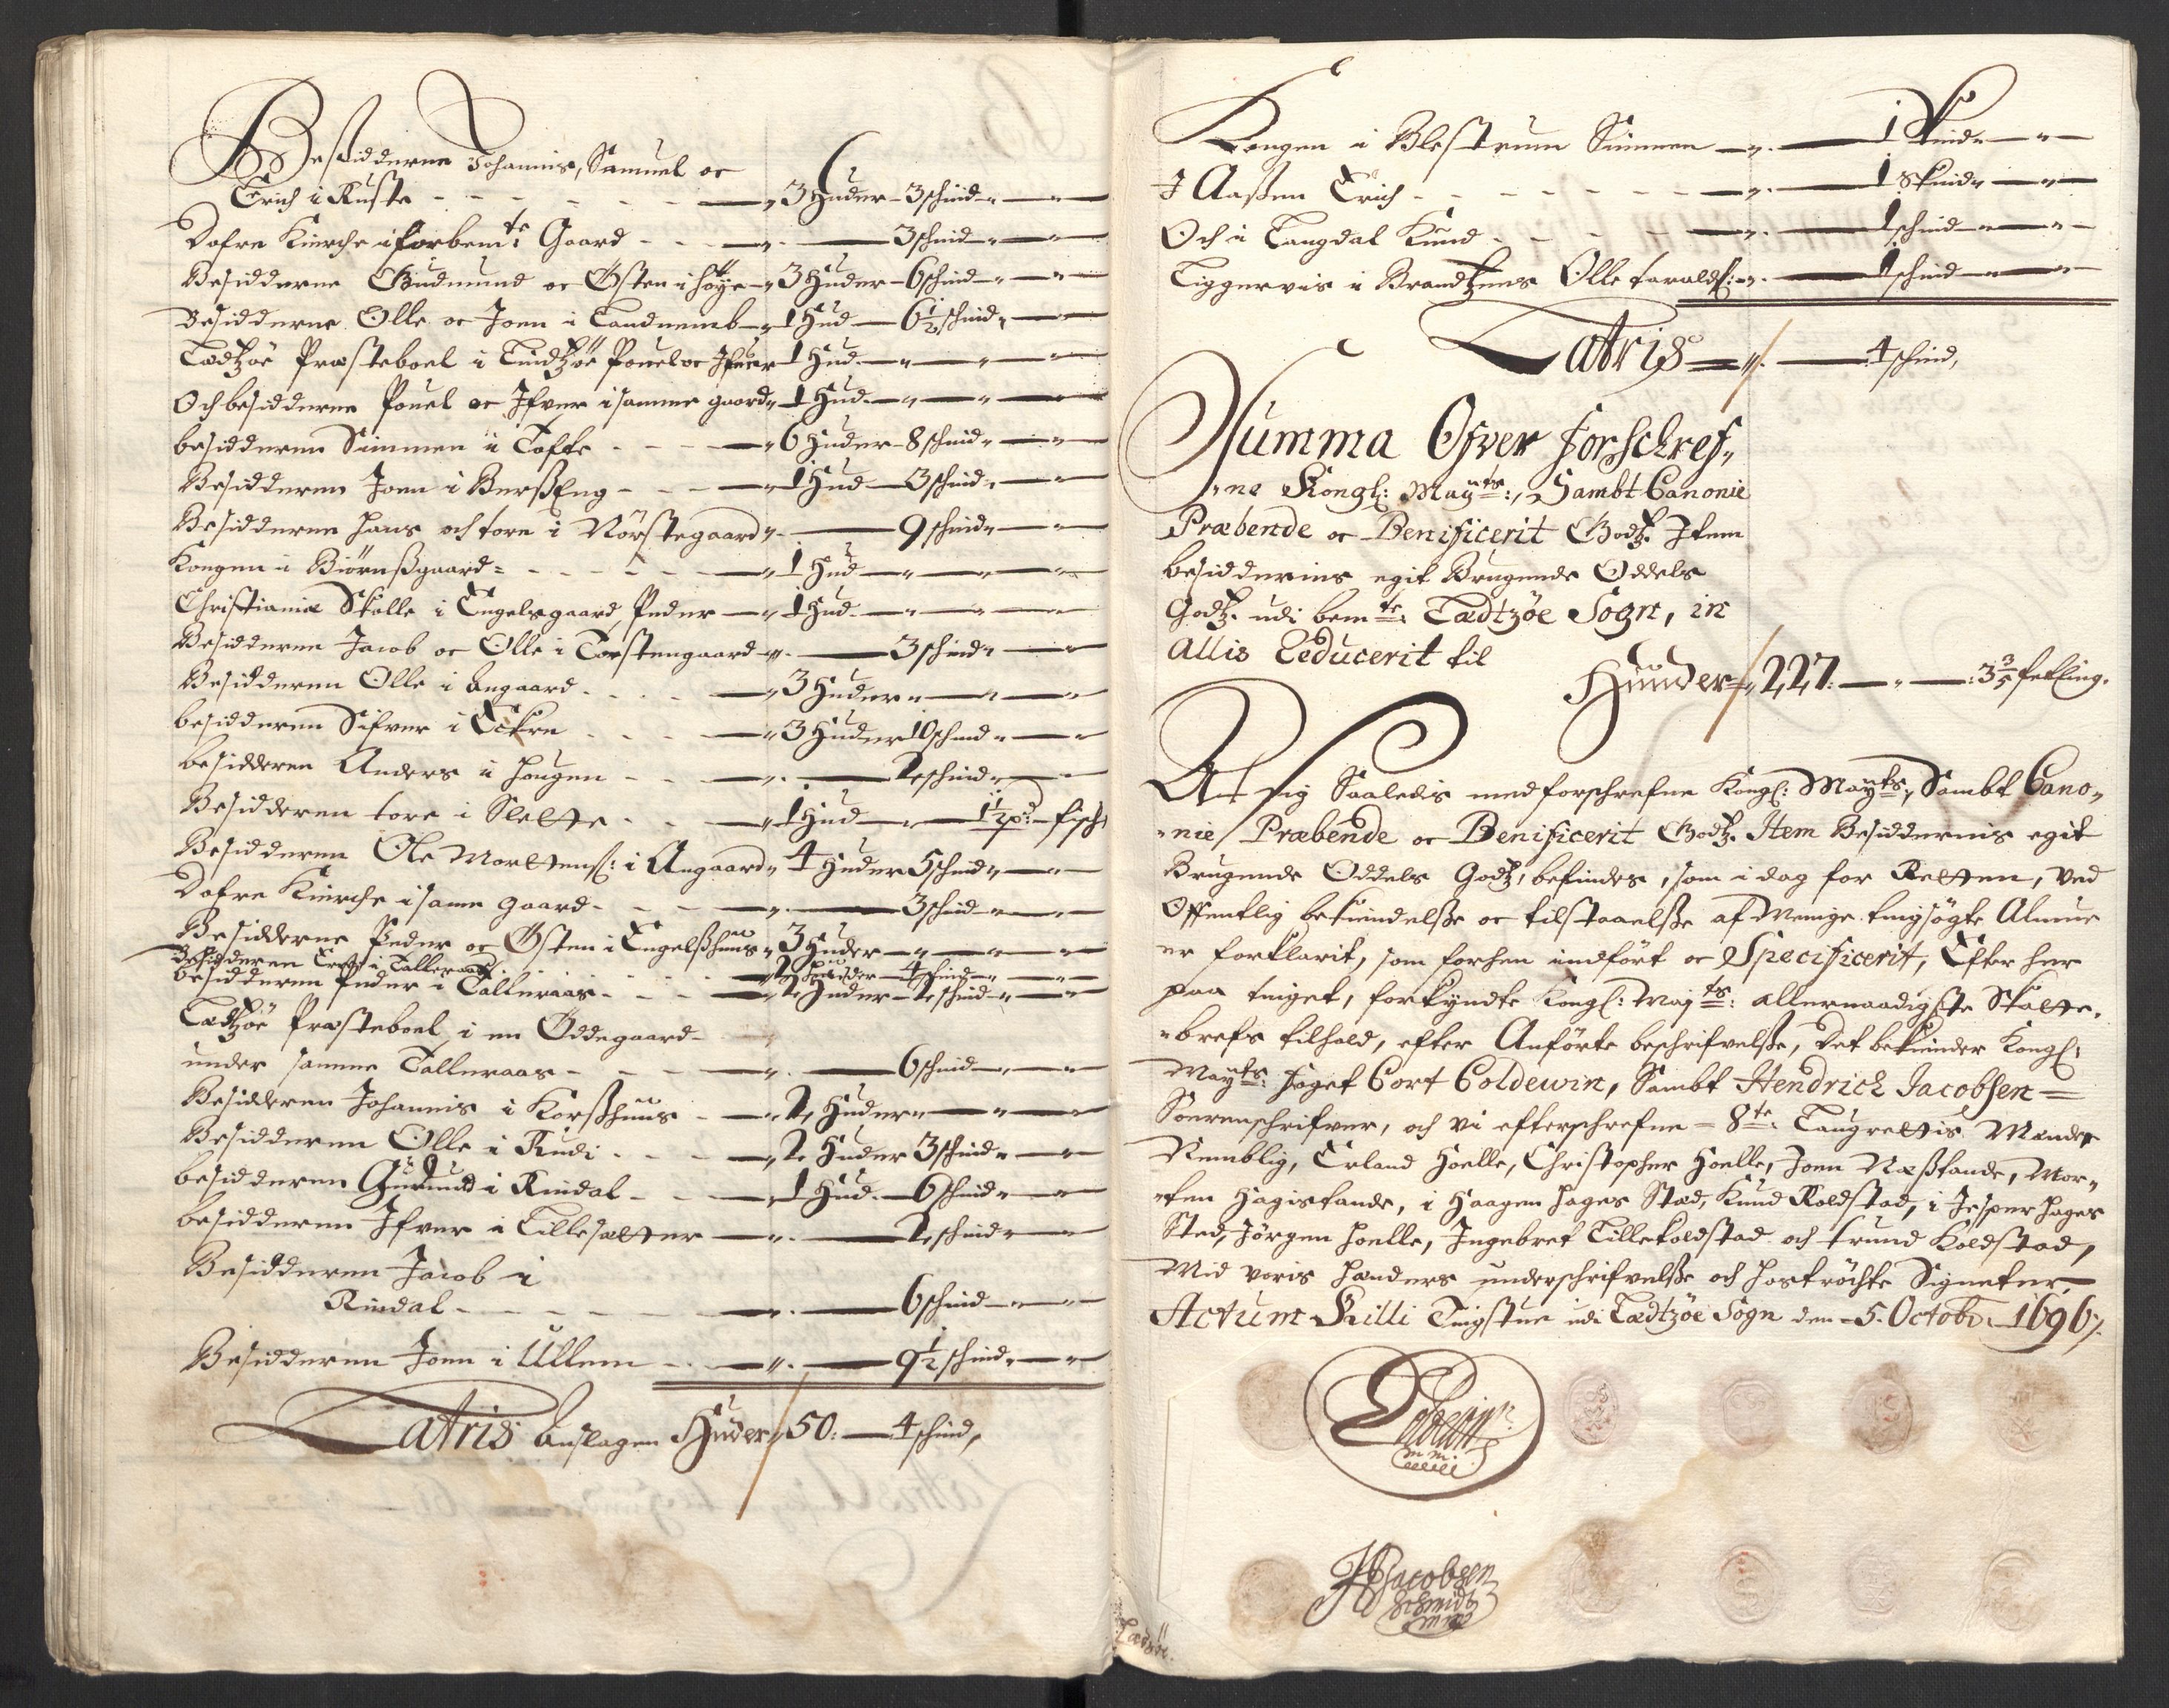 Besidderne Johannis, Samuel oc
Erich i Ruste - - - - - - - 3 Huder - 3 schind
Dofre Kierche i forbemte: Gaard - - - - 3 schind
Besidderne Gudmund oc Østen i Høÿe - 3 Huder - 6 schind
Besidderne Olle oc Joen i Landnemb - 1 Hud - 6½ schind
Lædtzöe Præsteboel i Lindtzöe Pouel oc Ifver 1 Hud
Och besidderne Pouel oc Ifver i samme gaard 1 Hud
besidderen Simmen i Tofte - - - 6 Huder - 8 schind
Besidderen Joen i Berßeng - - - 1 Hud - 3 schind
Besidderne Hans och tore i Nörstegaard - 9 schind
Kongen i Biörnßgaard - - - - - 1 Hud
Christianiæ Skolle i Engelsgaard, Peder - 1 Hud
Besidderne Jacob oc Olle i Torstengaard - 3 schind
Besidderen Olle i Angaard - - - - 3 Huder
besidderen Sifver i Eckre - - - 3 Huder 10 schind
besidderen Anders i Hougen - - - 2 schind
Besidderen tore i Slette - - - 1 Hud - 1½ pd: fisch
Besidderen Ole Mortens: i Angaard 4 Huder 5 schind
Dofre Kierche i same gaard - - - 3 schind
Besidderne Peder oc Østen i Engelßhuus 3 Huder
Besidderen Erich i Talleraas - - - 2 Huder - 4 schind
besidderen Peder i Talleraas - - - 2 Huder - 2 schind
Lædtzöe Præsteboel i en Ödegaard -
under samme Talleraas - - - 6 schind
Besidderen Johannis i Korßhuus - 2 Huder
Besidderen Olle i Rudi - - - 2 Huder 3 schind
besidderen Gudmund i Rindal - - 1 Hud - 6 schind
besidderen Ifver i Lillesætter - 2 schind
Besidderen Jacob i
Rindal - - - - - 6 schind
Besidderen Joen i Ullem - - 9½ schind
Latris Anslagen Huder 50: - 4 schind,
Kongen i Blestrum Simmen - 1 Skind
I Aaßen Erich - - - - - 1 Skind
Och i Langdal Knud - - - - 1 schind
Tiggervis i Brandtzens Olle taralds: - 1 schind
Latris - 4 schind,
Summa Ofver forschref,
,ne Kongl: Mayts:, Sambt Canonie
Præbende oc Benificerit Godtz. Item
besidderins egit Brugende Oddels
Godtz. udi bemte: Lædtzöe Sogn, in
Allis Reducerit til
Hunder 227: - 3 3/5 fetling.
At sig Saaledis med forschrefne Kongl: Mayts, Sambt Cano,
,nie, Præbende oc Benificerit Godtz. Item Besiddernis egit
Brugende Oddels Godtz, befindes, som i dag for Retten, ved
Offentlig bekiendelße oc tilstaaelße af Menige tingsögte Almue
er forklarit, som forhen indfört oc Specificerit, Efter her
paa tinget, forkyndte Kongl: Mayts: allernaadigste Skatte,
,brefs tilhold, efter Anförte beschrifvelße, Det bekiender Kongl:
Mayts: foget Cort Coldewin, Sambt Hendrich Jacobsen
Sorenschrifver, och vi efterschrefne 8te: Laugrettis Mænd
Nemblig, Erland Hoelle, Christopher Hoelle, Joen Næßtande, Mor,
,ten Hagistande, i Haagen Hages Stæd, Knud Koldstad, i Jesper Hages
Sted, Jörgen Hoelle, Ingebret Lillekoldstad och trund Koldstad,
Mid voris Hænders underschrifvelße och hoströchte Signeter
Actum Killi Tingstue udi Lædtzöe Sogn den 5. Octobr: 1696.
Coldewin
mm
HJacobsen
Schmidt
mp
Lædtzöe